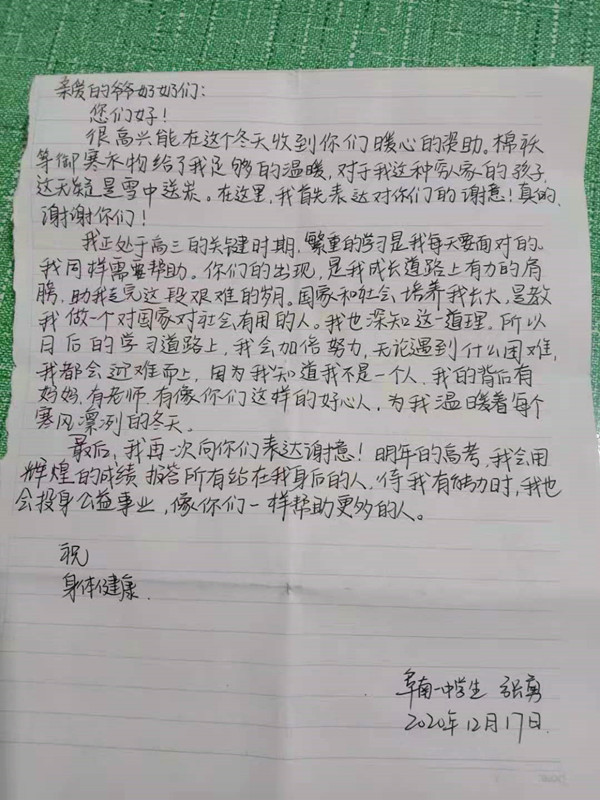 亲爱的爷爷奶奶们：
您们好！
很高兴能在这个冬天收到你们暖心的资助。棉袄
等御寒衣物给了我足够的温暖，对于我这种穷人家的孩子，
这无疑是雪中送炭。在这里，我首先表达对你们的谢意！真的，
谢谢你们！
我正处于高三的关键时期，繁重的学习是我每天要面对的。
我同样需要帮助。你们的出现，是我成长道路上有力的肩
膀，助我走完这段艰难的岁月。国家和社会，培养我长大，是教
我做一个对国家对社会有用的人。我也深知这一道理。所以
日后的学习道路上，我会加倍努力，无论遇到什么困难，
我都会迎难而上，因为我知道我不是一个人，我的背后有
妈妈，有老师，有像你们这样的好心人，为我温暖着每个
寒风凛冽的冬天。
最后，我再一次向你们表达谢意！明年的高考，我会用
辉煌的成绩报答所有站在我身后的人，待我有能力时，我也
会投身公益事业，像你们一样帮助更多的人。
祝
身体健康.
阜南一中学生 张勇
2020年12月17日.